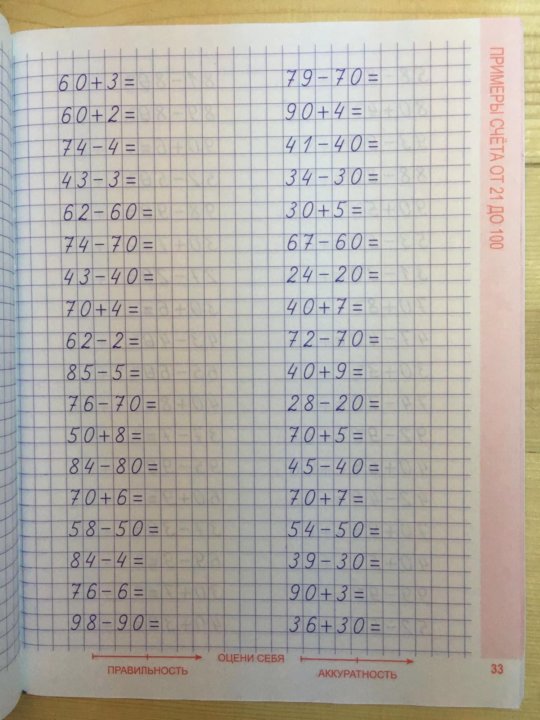 60+3=
60+2=
74-4=
43-3=
62-60=
74-70=
43-40=
70+4=
62-2=
85-5=
76-70=
50+8=
84-80=
70+6=
58-50=
84-4=
76-6=
98-90=
79-70=
90+4=
41-40=
34-30=
30+5=
67-60=
24-20=
40+7=
72-70=
40+9=
28-20=
70+5=
45-40=
70+7=
54-50=
39-30=
90+3=
36+30=
ПРИМЕРЫ СЧЁТА ОТ 21 ДО 100
ОЦЕНИ СЕБЯ
ПРАВИЛЬНОСТЬ
АККУРАТНОСТЬ
33